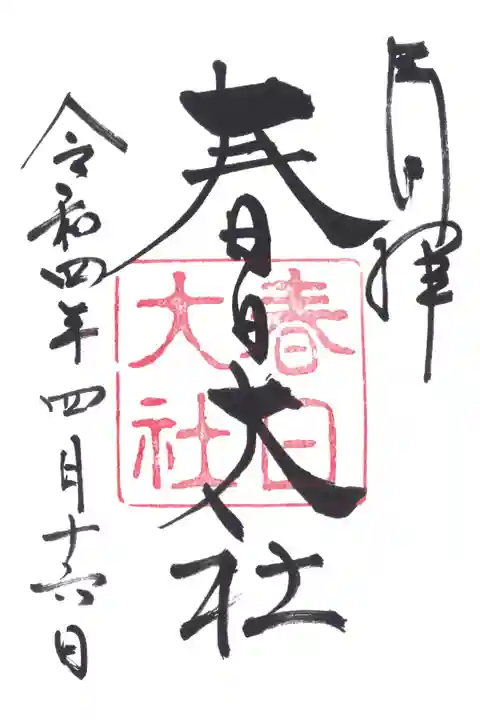 奉拝
春日大社
春日大社
令和四年四月十六日